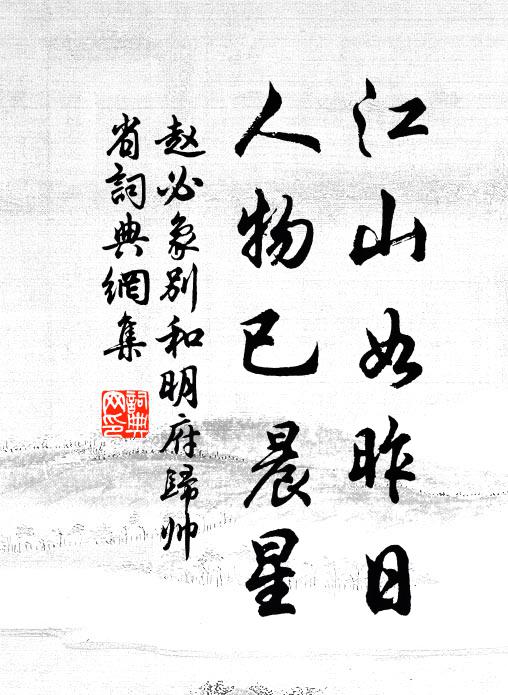 江山如昨日
人物已晨星
赵必象别和明府歸帅
省詞典網集
詞典
网印